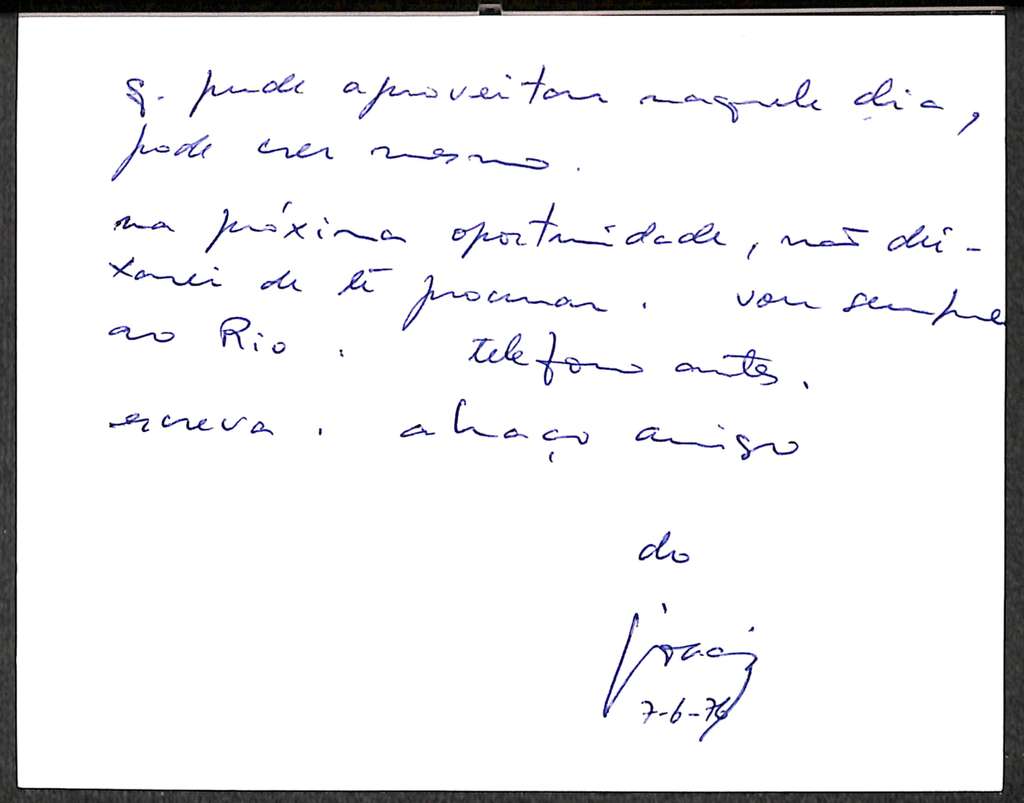 q. pude aproveitar naquele dia,
pode crer mesmo.
na próxima oportunidade, não dei-
xarei de te procurar. vou sempre
ao Rio. telefono antes.
escreva. abraço amigo
do
7-6-76